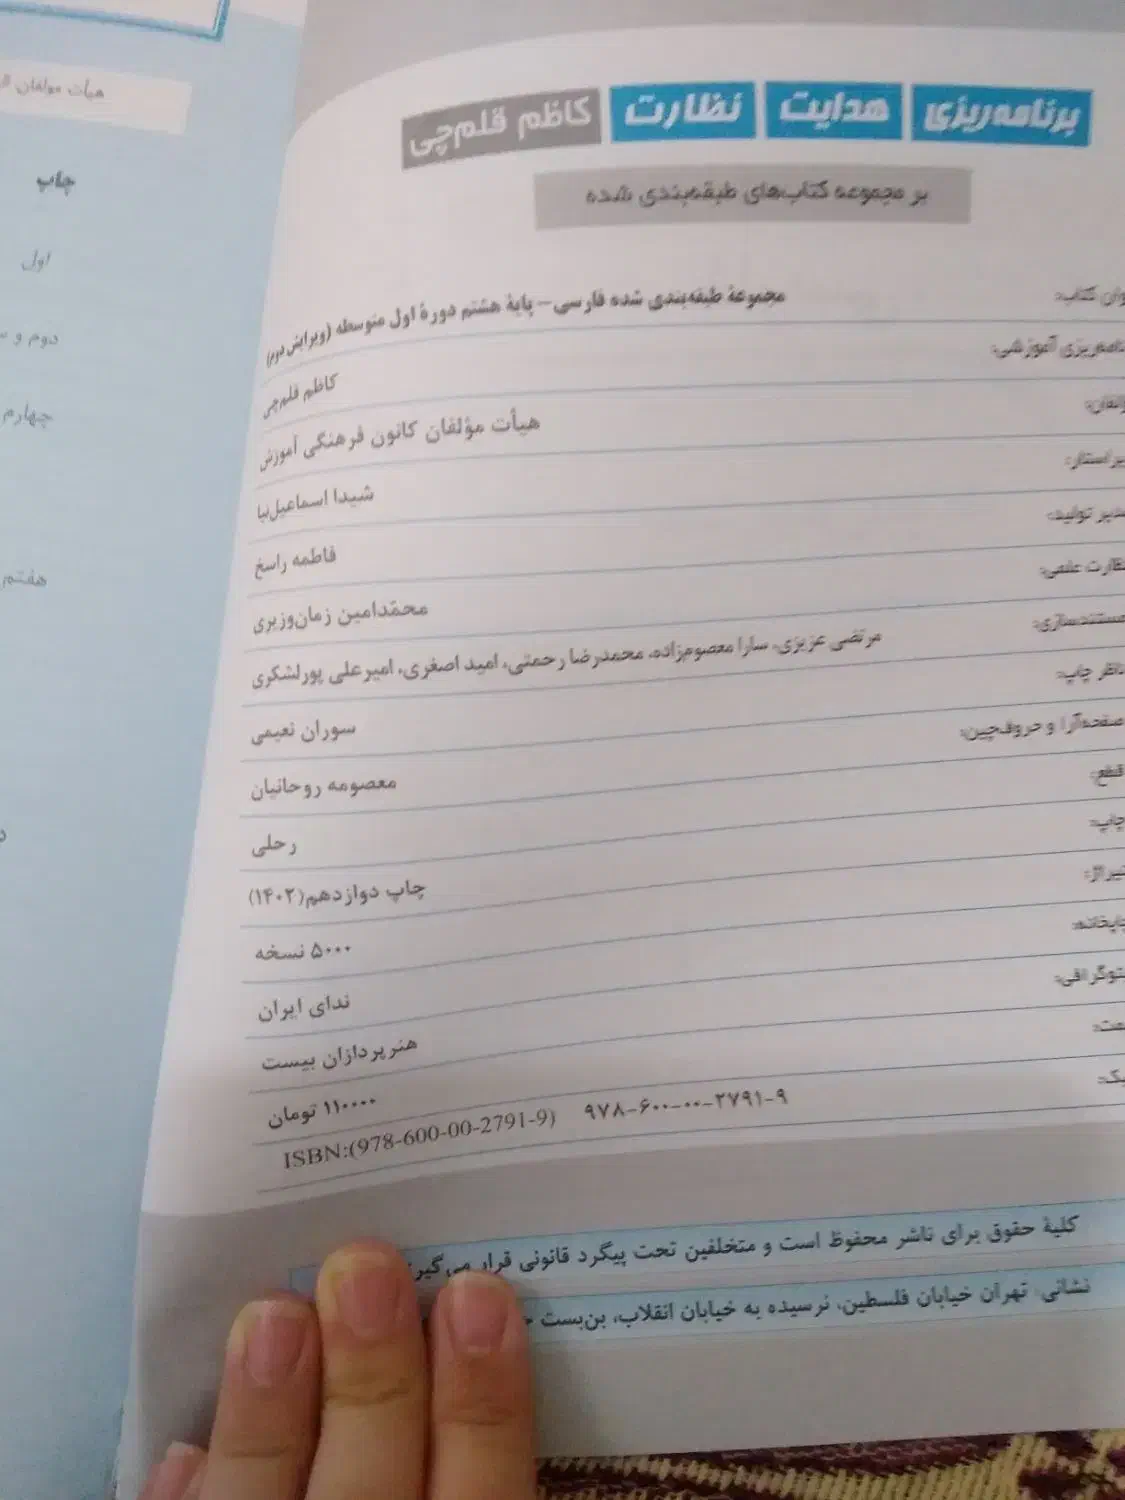 برنامه‌ریزی هدایت نظارت کاظم قلم‌چی
بر مجموعه کتاب‌های طبقه‌بندی شده
کتاب: مجموعهٔ طبقه‌بندی شده فارسی – پایهٔ هشتم دورهٔ اول متوسطه (ویرایش دوم)
آموزشی: کاظم قلم‌چی
هیأت مؤلفان کانون فرهنگی آموزش
شیدا اسماعیل‌نیا
تولید: فاطمه راسخ
علمی: محمّدامین زمان‌وزیری
مستندسازی: مرتضی عزیزی، سارا معصوم‌زاده، محمدرضا رحمتی، امید اصغری، امیرعلی پورلشکری
ناظر چاپ: سوران نعیمی
صفحه‌آرا و حروف‌چین: معصومه روحانیان
قطع: رحلی
چاپ: چاپ دوازدهم(۱۴۰۲)
تیراژ: ۵۰۰۰ نسخه
ندای ایران
هنرپردازان بیست
۱۱۰۰۰۰ تومان
۹۷۸-۶۰۰-۰۰-۲۷۹۱-۹ ISBN:(978-600-00-2791-9)
کلیهٔ حقوق برای ناشر محفوظ است و متخلفین تحت پیگرد قانونی قرار
نشانی: تهران خیابان فلسطین، نرسیده به خیابان انقلاب، بن‌بست
هیأت مولفان
چاپ
اول
دوم و
چهارم
هفتم